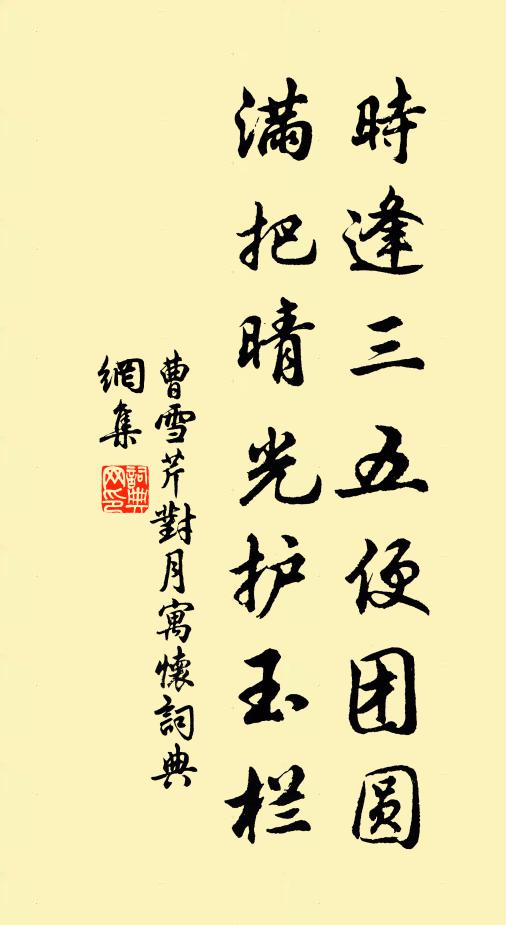 時逢三五便团圆
满把晴光护玉栏
曹雪芹對月寓懷詞典
網集
詞典
网印